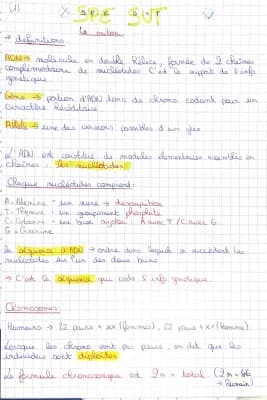 SPE SVT
→ definitions
ADN → molécule en double hélice, formée de 2 chaines
complémentaire de nucléotides. C'est le support de l'info
genetique.
Gène → portion d'ADN donc de chromo. codant pour un
caractère héréditaire
Allèle → une des versions possibles d'un gène
L'ADN est constitué de molécules élémentaires assemblées en
chaines : les nucléotides.
Chaque nucléotides comprend :
A = Adénine - un sucre → désoxyribose
T = Thymine - un groupement phosphate
C = Cytosine - une base azotée : A avec T / C avec G
G = Guanine
La séquence d'ADN → ordre dans lequel se succèdent les
nucléotides sur l'un des deux brins
→ C'est la séquence qui code l'info génétique
Chromosomes :
Humains → 22 paires + xx (femmes), 22 paires + xy (Homme)
Lorsque les chromo sont par paires, on dit que les
individus sont diploïdes
La formule chromosomique est 2n = total (2n = 46
→ humain)